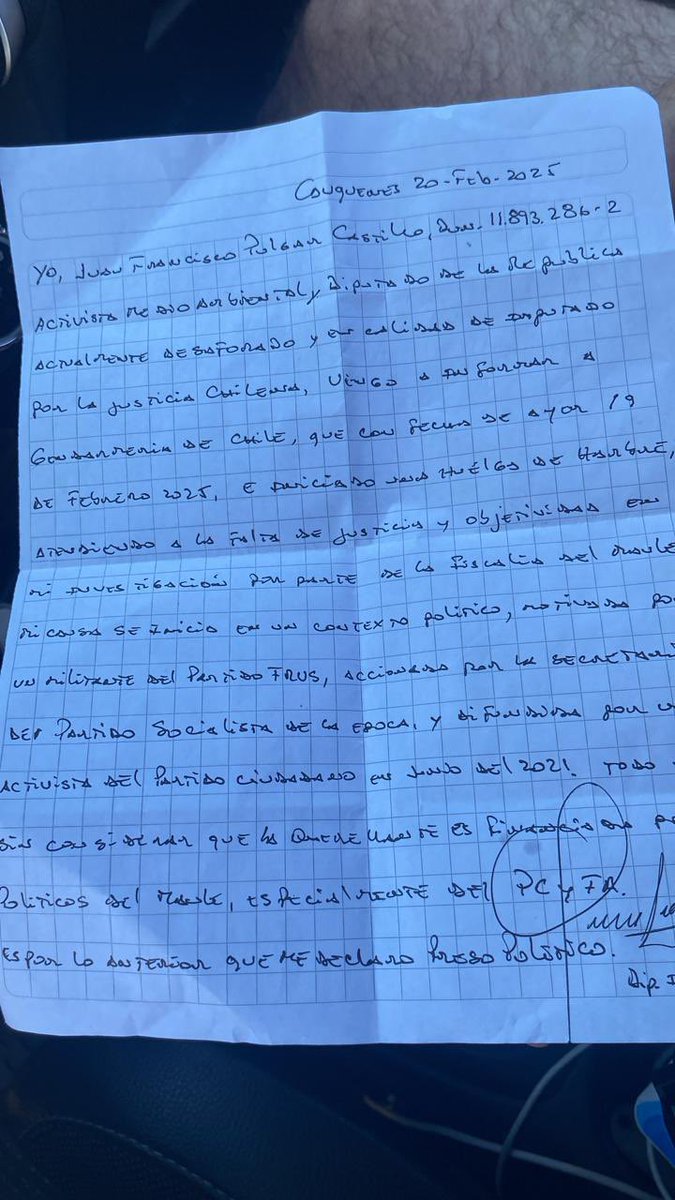 Cauquenes 20-Feb-2025
Yo, Juan Francisco Pulgar Castillo, Run. 11.893.286-2
Activista Medio Ambiental, y Diputado de la Republica
actualmente desaforado y en calidad de imputado
por la justicia Chilena, vengo a informar a
Gendarmeria de Chile, que con fecha de ayer 19
de Febrero 2025, e iniciado una Huelga de Hambre,
atendiendo a la falta de justicia y objetividad en
mi investigación por parte de la Fiscalia del Maule
mi causa se inicio en un contexto político, motivada po
un militante del Partido FRVS, accionada por la Secretari
del Partido Socialista de la epoca, y difundida por u
activista del Partido Ciudadano en Junio del 2021. Todo
sin considerar que la Querellante es Funcionaria
Politicos del Maule, especialmente del PC y FA.
es por lo anterior que me declaro Preso Político.
Dip.